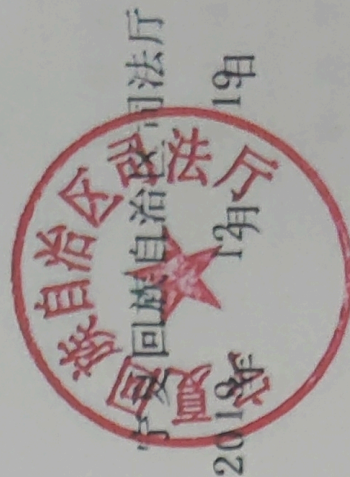 宁夏回族自治区司法厅
2019年12月19日
宁夏回族自治区司法厅